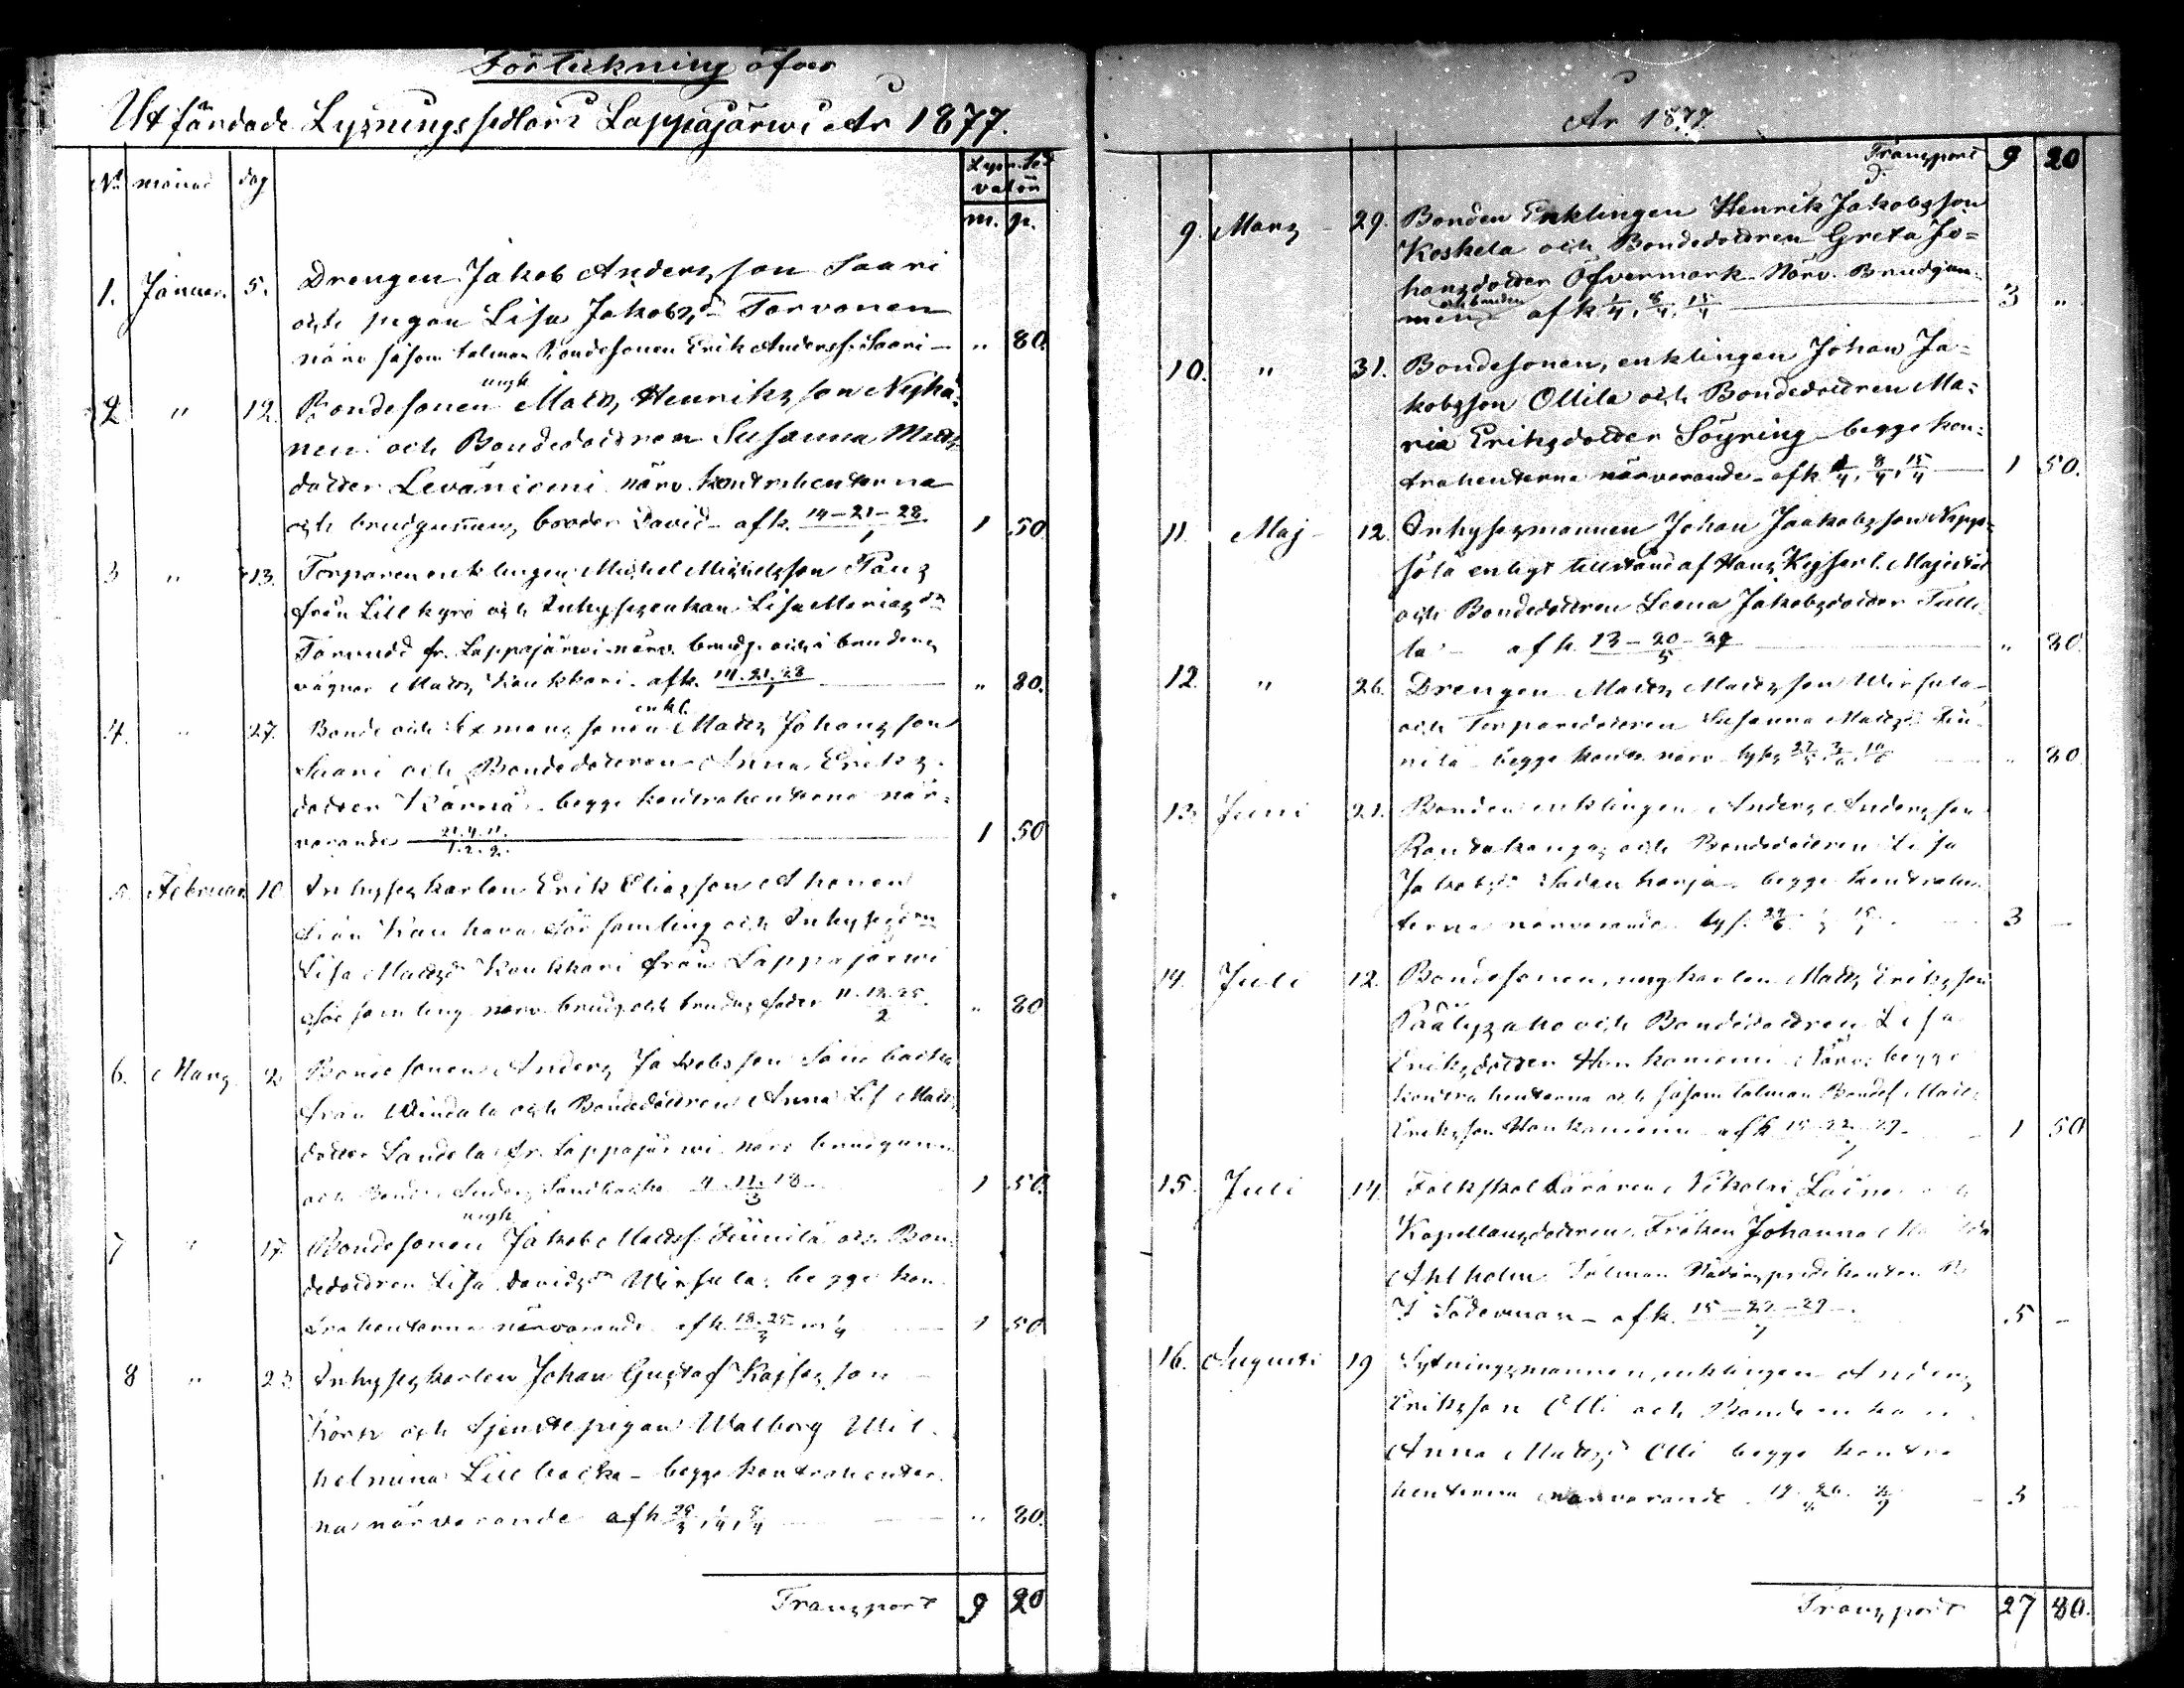 Förteckning öfver
Utfärdade Lysningssedlar i Lappajärwi År 1877.
No månad dag Lysn. Sed. valör
m. p.
1. Januari 5. Drengen Jakob Andersson Saari
och pigan Lisa Jakobsdr Torvonen
närv såsom talman Bondesonen Erik Anderss. Saari — " 80.
2. " 12. Bondesonen ungk Matts Henriksson Nykä-
nen och Bondedottren Susanna Matts-
dotter Leväniemi närv. kontrahenterna
och brudgummens broder David - afk. 14-21-28/1 1 50
3 " 13. Torparen enklingen Michel Michelsson
från Lillkyro och Inhysesenkan Lisa Mariasdr
fr. Lappajärwi närv. brudg. och å brudens
vägnar Matts Kaukkari. afk. 14.21.28/1 " 80.
4. " 27. Bonde och Sexmanssonen enkl. Matts Johansson
Saari och Bondedottren Anna Eriks-
dotter Kärnä - begge kontrahenterna när-
varande 21.4.11./1.2.2. 1 50
5. Februari 10 Inhyseskarlen Erik Eliasson Ahonen
från Kauhava församling och Inhysesdn
Lisa Mattsdr Kaukkari från Lappajärwi
församling närv brudg. och brudens fader 11.18.25/2 " 80
6. Mars 2. Bondesonen Anders Jakobsson Sandbacka
från Windala och Bondedottren Anna Lis Matts-
dotter Sandela fr. Lappajärwi närv brudgum
och Bonden Anders Sandbacka 4.11.18/3 1 50.
7 " 17 Bondesonen ungk Jakob Mattss. Finnilä och Bon-
dedottren Lisa Davidsdr Wirsula begge kon-
trahenterna närvarande afk. 18.25/3 o 1/4 1 50
8 " 23 Inhyseskarlen Johan Gustaf Kajsasson
Korp och tjenstepigan Walborg Wil-
helmina Lillbacka - begge kontrahenter-
na närvarande afk 25/3, 1/4, 8/4 " 80.
Transport 9 20
År 1877.
Transport 9 20
9. Mars 29. Bonden Enklingen Henrik Jakobsson
Koskela och Bondedottren Greta Jo=
hansdotter Öfvermark Närv. Brudgum-
men och bruden afk. 1/4, 8/4, 15/4 3 "
10. " 31. Bondesonen, enklingen Johan Ja=
kobsson Ollila och Bondedottren Ma=
ria Eriksdotter Söyring begge kon=
trahenterna närvarande - afk 1/4, 8/4, 15/4 1 50.
11. Maj 12. Inhysesmannen Johan Jaakobsson
enligt tillstånd af Hans Kejserl. Majestät
och Bondedottren Leena Jakobsdotter
afk. 13-20-27/5 " 80.
12. " 26. Drengen Matts Mattsson Wirsula
och Torparedottren Susanna Mattsdr Fin-
nilä begge kontr. närv lyses 27/5 3/6 10/6 " 80
13. Juni 21. Bonden enklingen Anders Andersson
Rantakangas och Bondedottren Lisa
Jakobsdr Sadanharja begge kontrahen-
terna närvarande lys. 3 —
14. Juli 12. Bondesonen, ungkarlen Matts Eriksson
Päälysaho och Bondedottren Lisa
Eriksdotter Honkaniemi Närv. begge
kontrahenterna och såsom talman Bondes. Matts
Eriksson Honkaniemi afk 15-22-29/7 1 50
15. Juli 14. Folkskolläraren Nikolai Laine och
Kapellansdottren Fröken Johanna
Ahlholm Talman Nådårspredikanten
J Söderman - afk. 15-22-29/7 5 —
16. Augusti 19 Sytningsmannen, enklingen Anders
Eriksson Olli och Bondeenkan
Anna Mattsdr Olli begge kontra
henterna närvarande 19. 26. 3
Transport 27 80.